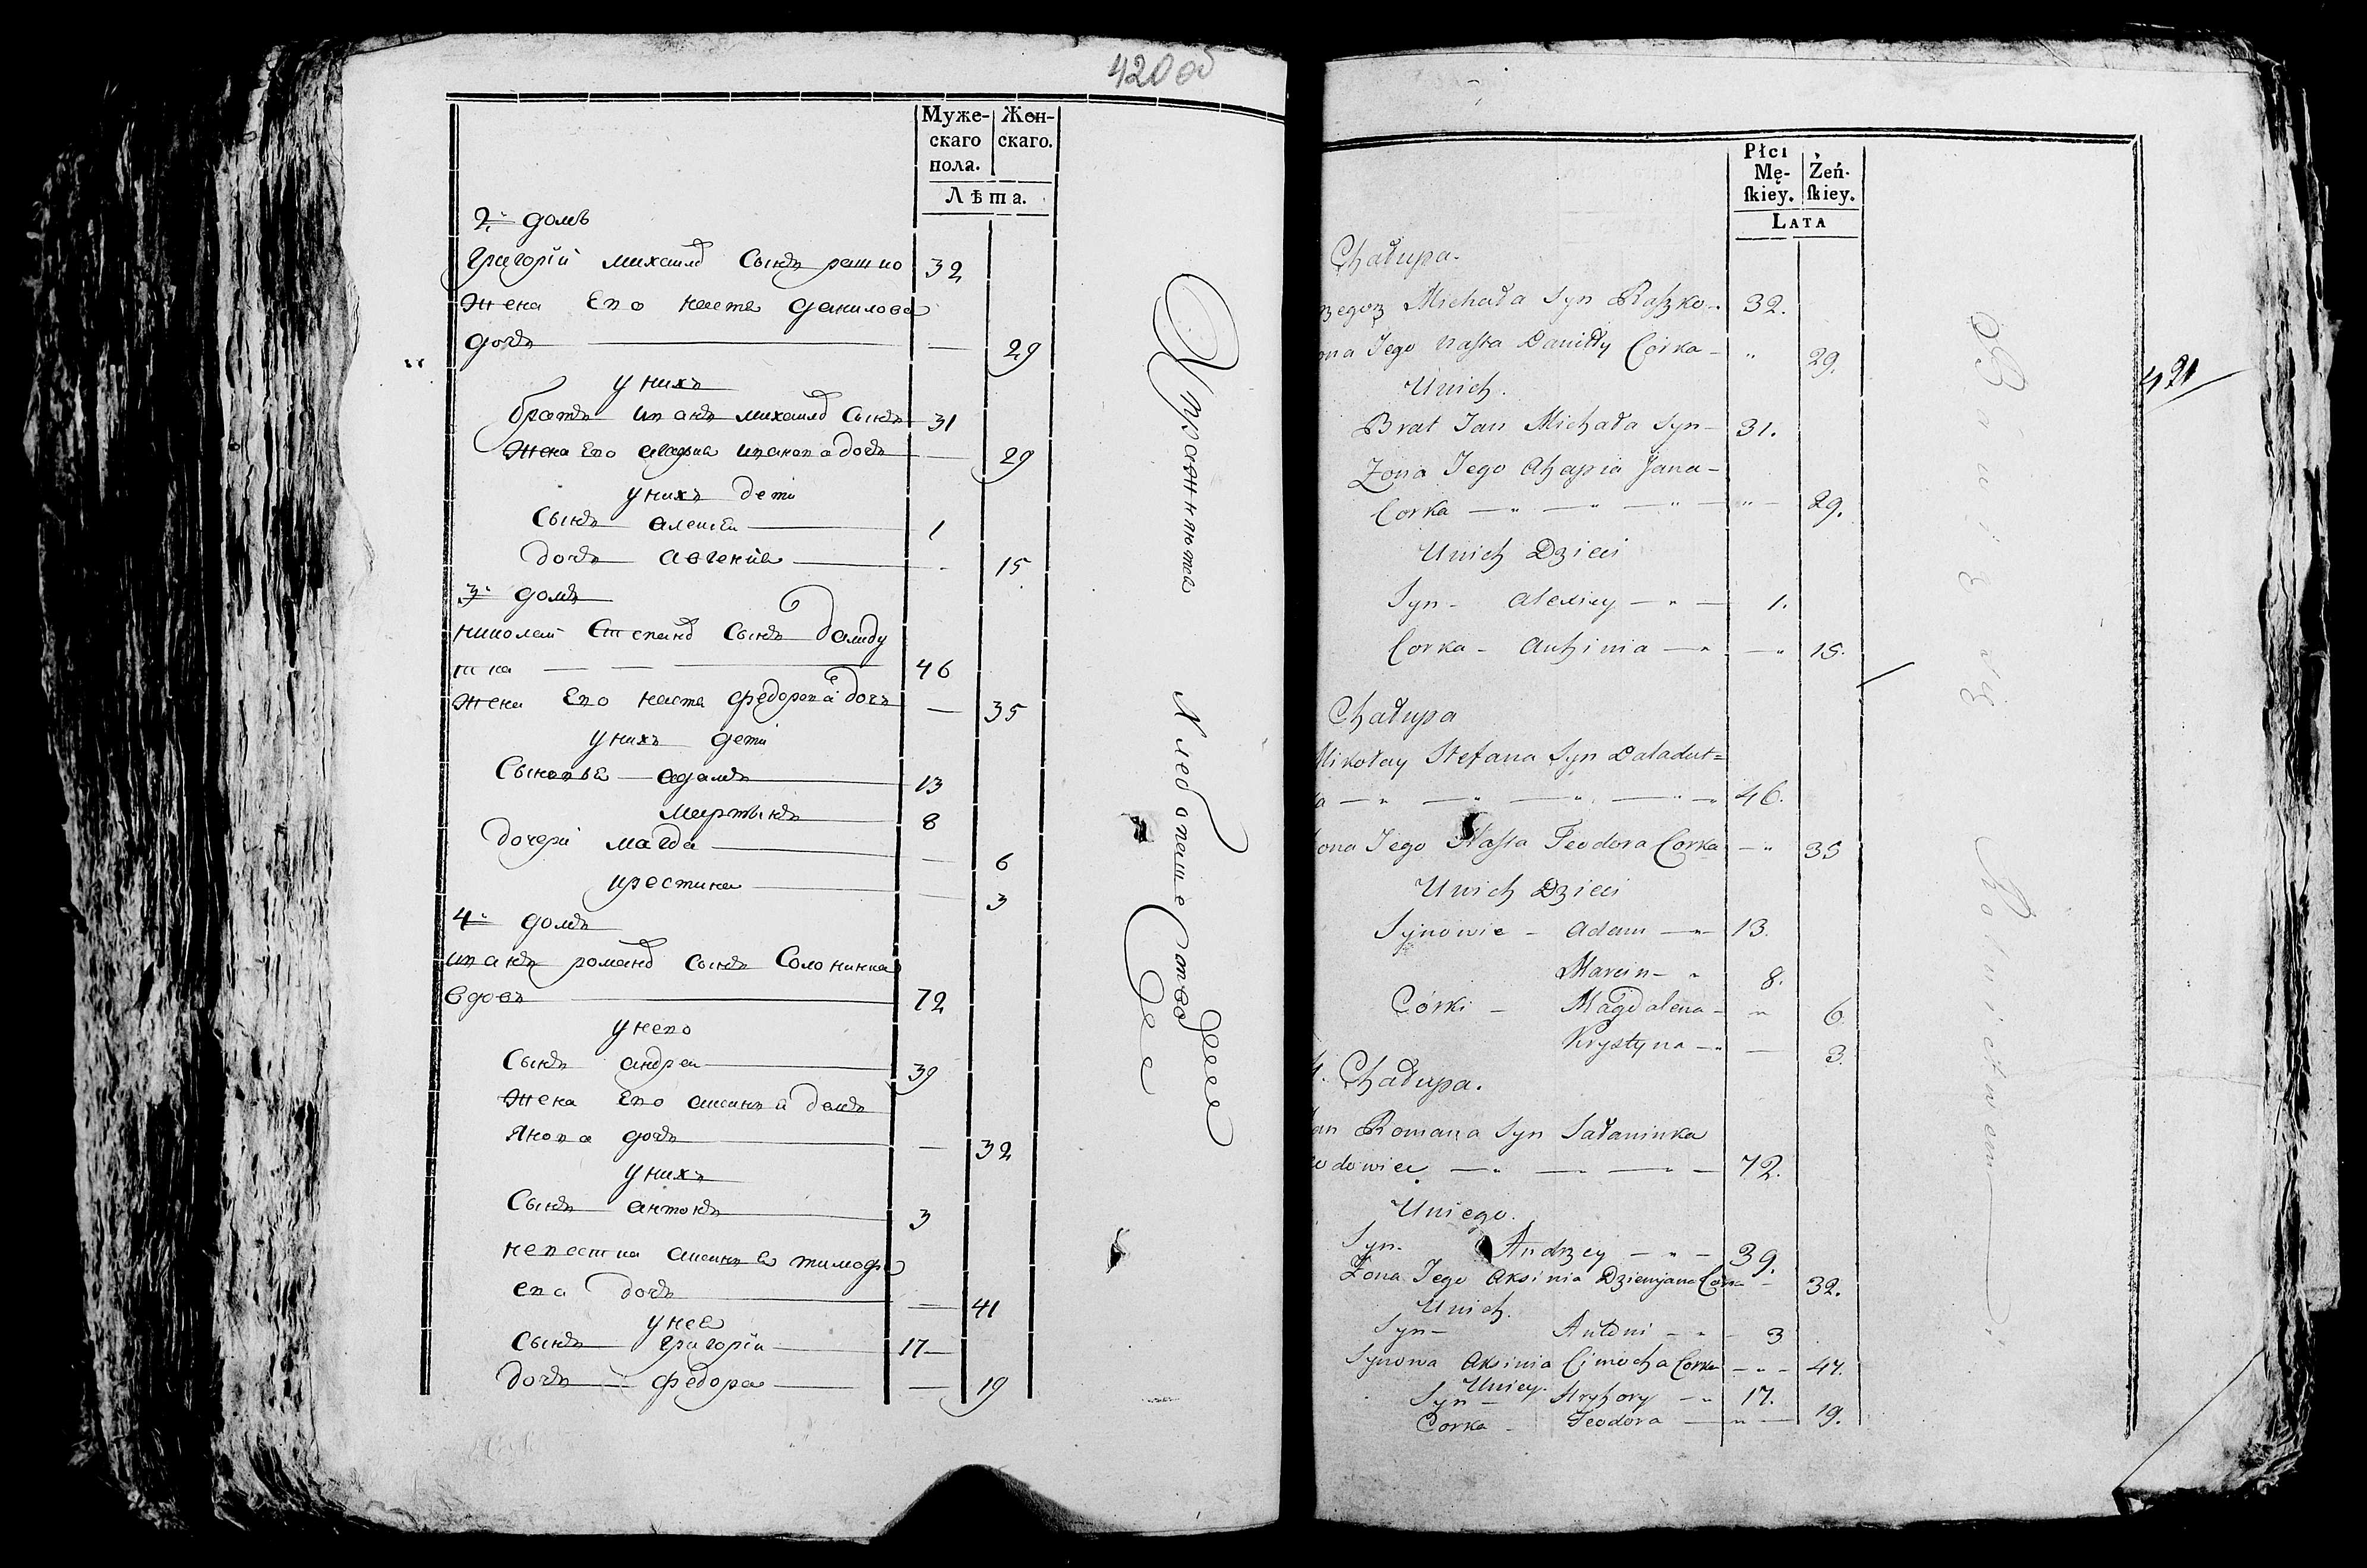 420 об
Муже-
скаго
пола.
Жен-
скаго.
Лѣта.
2й домъ
Григорій михаилѡ Сынъ рашко 32
Жена Его наста данилова
дочь — 29
у нихъ
братъ иванъ михаилѡ Сынъ 31
Жена Его агафиа иванова дочь — 29
у нихъ дети
Сынъ алексѣй 1
дочь авгениа 15
3й домъ
николай Степанѡ Сынъ далиду
тка 46
Жена Его наста федорова дочъ — 35
у нихъ дети
Сыновья адамъ 13
мартынъ 8
дочери магда — 6
крестина — 3
4й домъ
иванъ романѡ сынъ Солонинка
вдовъ 72
у него
Сынъ андреи 39
Жена Его аксиня демъ
янова дочь — 32
у нихъ
Сынъ антонъ 3
невестка аксиня тимофе
ева дочь — 41
у нея
Сынъ григорій 17
дочь федора — 19
упражняются
хлебопашеством
Płci
Mę-
ſkiey.
Żeń-
ſkiey.
LATA
421
Chałupa.
rzegorz Michała Syn Raszko 32.
ona Jego Nasta Daniłły Córka „ 29.
U nich.
Brat Jan Michała Syn 31.
Zona Jego Ahapia Jana
Corka „ 29.
U nich Dzieci
Syn Alexiey 1.
Corka Auhinia „ 15.
Chałupa
Mikołay Stefana Syn Daładut=
a 46.
ona Jego Nasta Teodora Corka „ 35
U nich Dzieci
Synowie Adam 13.
Marcin 8.
Córki Magdalena „ 6.
Krystyna — 3.
4. Chałupa.
Jan Romana Syn Sałaninka
wdowiec 72.
U niego.
Syn Andrzey 39.
Zona Jego Aksinia Dziemjana Corka 32.
U nich.
Syn Antoni 3
Synowa Aksinia Cimocha Corka „ 41.
U niey.
Syn Hryhory 17.
Corka Teodora „ 19.
Bawią się Rolnictwem